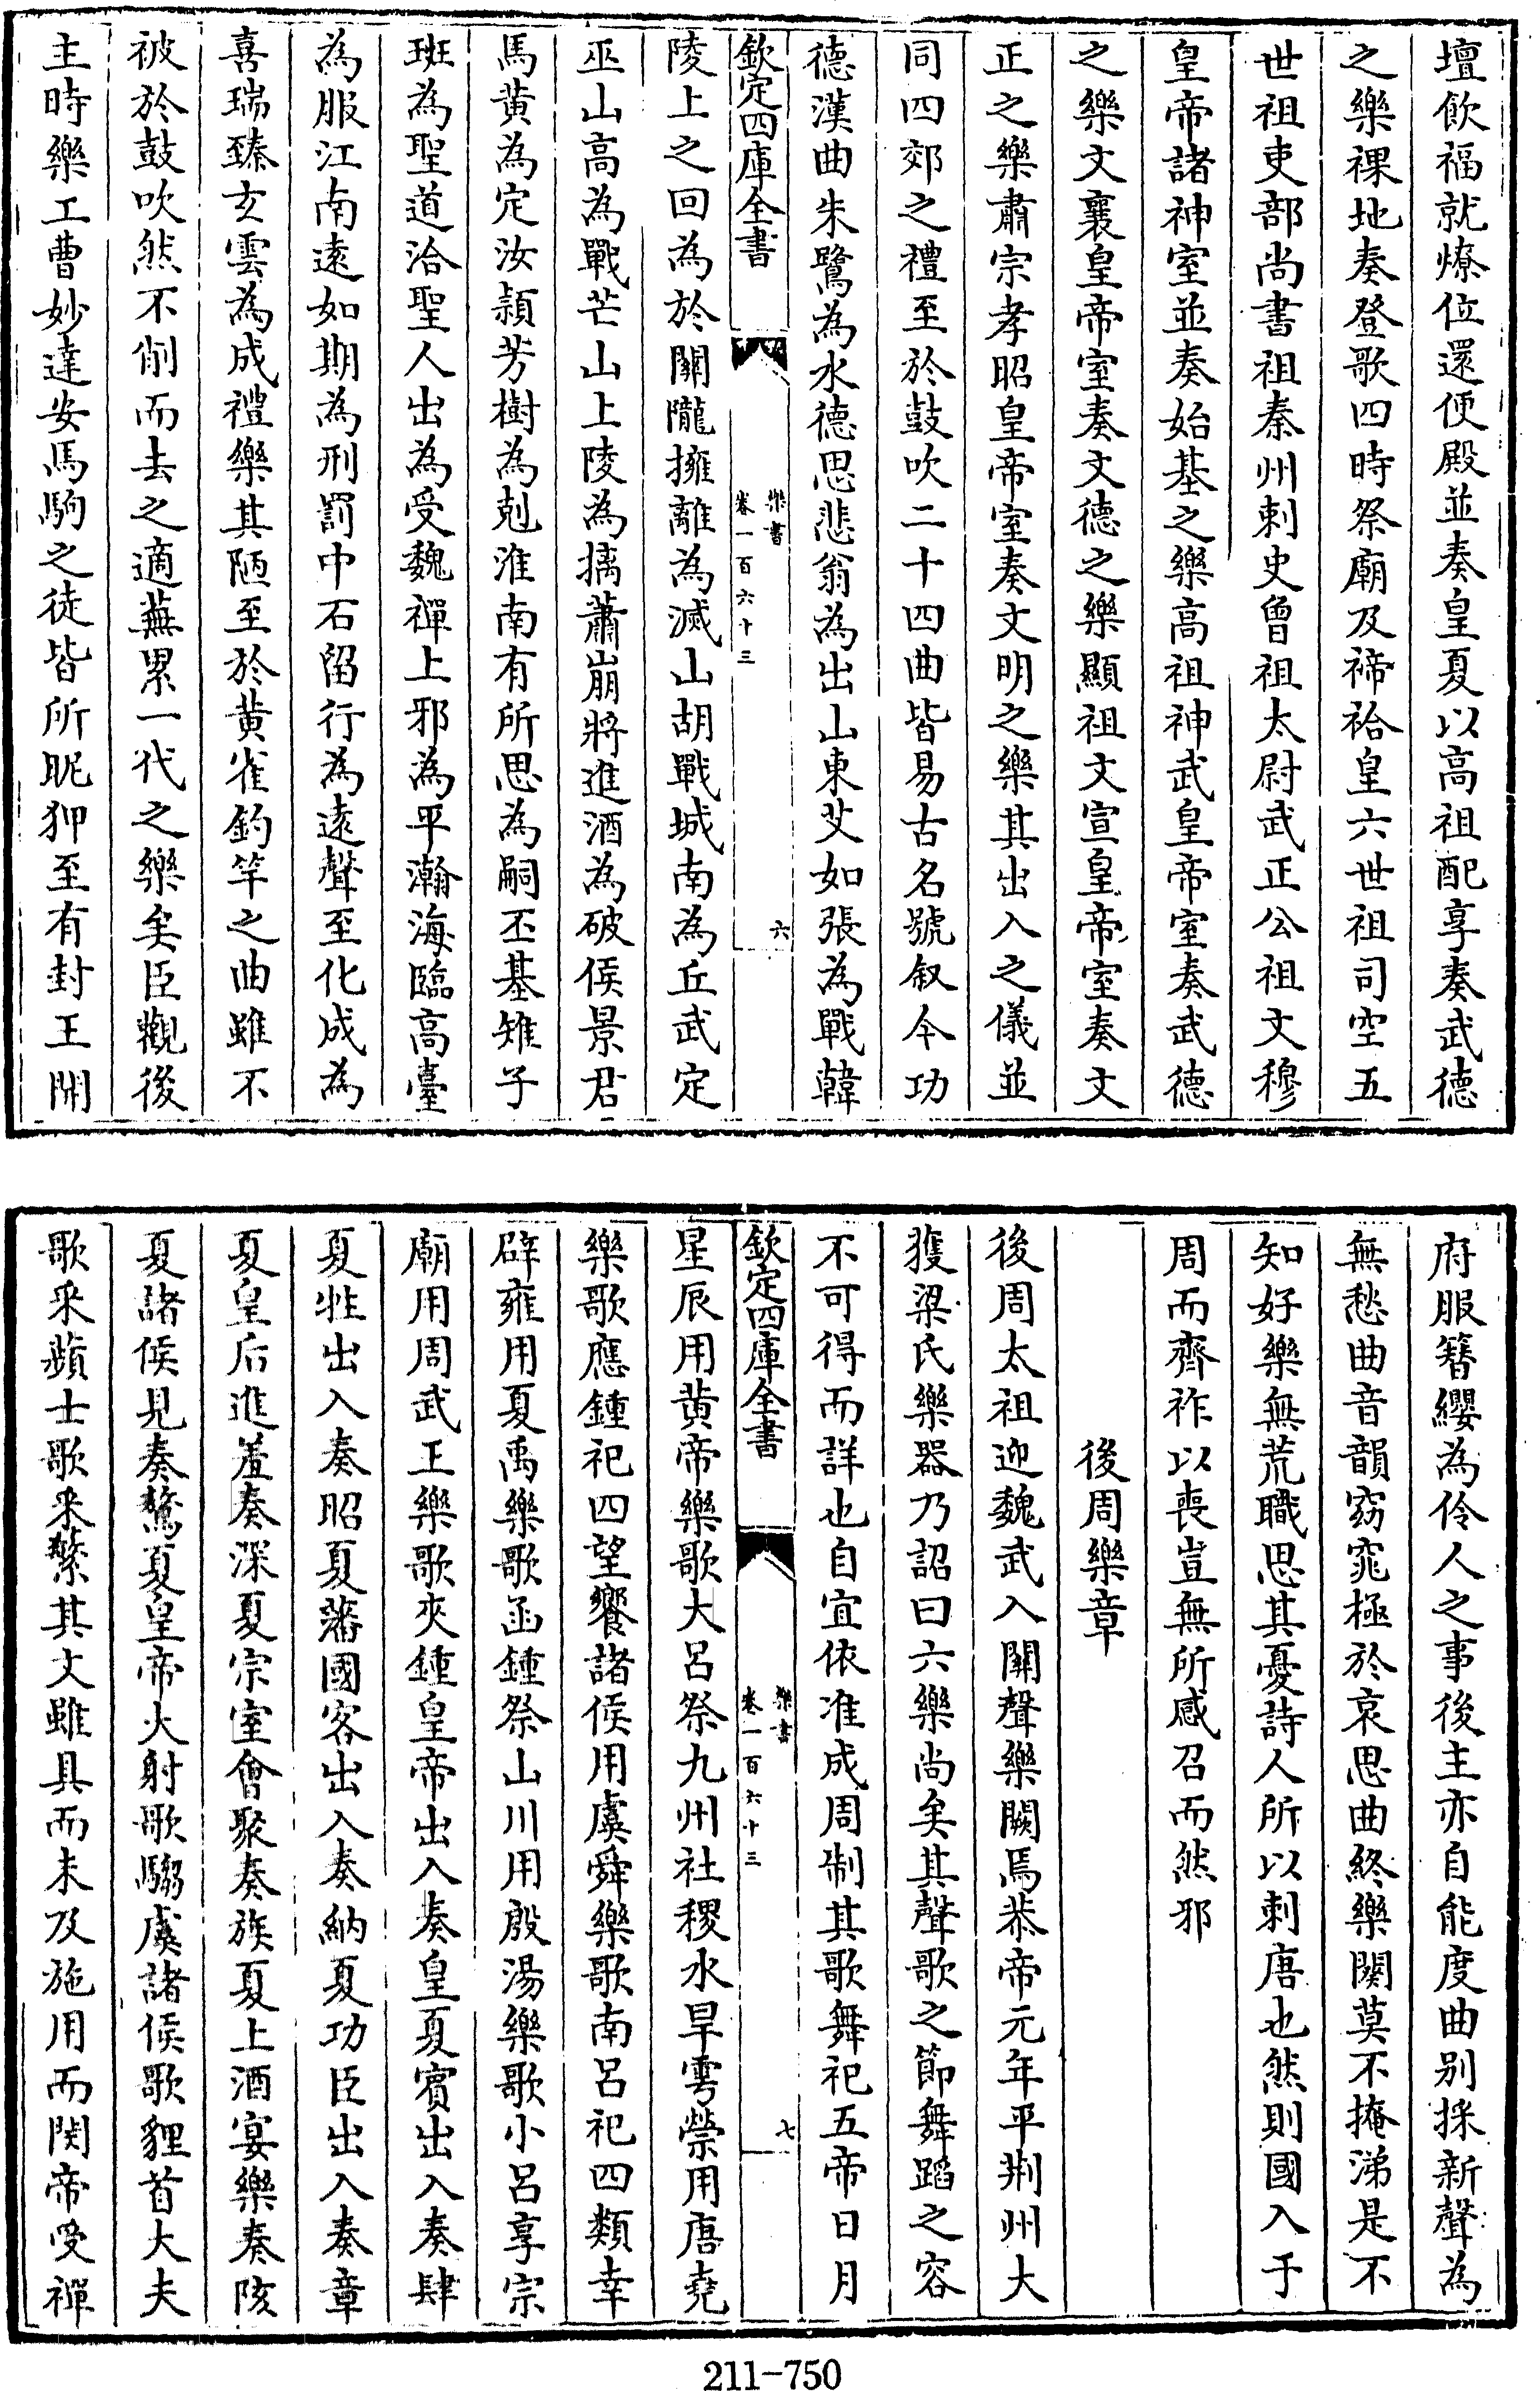 壇飲福就燎位還便殿並奏皇夏以高祖配享奏武德
之樂祼地奏登歌四時祭廟及禘祫皇六世祖司空五
世祖吏部尚書祖秦州刺史曾祖太尉武正公祖文穆
皇帝諸神室並奏始基之樂高祖神武皇帝室奏武德
之樂文襄皇帝室奏文德之樂顯祖文宣皇帝室奏文
正之樂肅宗孝昭皇帝室奏文明之樂其出入之儀並
同四郊之禮至於鼓吹二十四曲皆易古名號叙今功
德漢曲朱鷺為水德思悲翁為出山東艾如張為戰韓
欽定四庫全書
樂書
卷一百六十三
六
陵上之回為於關隴擁離為滅山胡戰城南為丘武定
巫山高為戰芒山上陵為擒蕭崩將進酒為破侯景君
馬黄為定汝潁芳樹為剋淮南有所思為嗣丕基雉子
班為聖道洽聖人出為受魏禪上邪為平瀚海臨高臺
為服江南遠如期為刑罰中石留行為遠聲至化成為
喜瑞臻玄雲為成禮樂其陋至於黄雀釣竿之曲雖不
被於鼓吹然不削而去之適蕪累一代之樂矣臣觀後
主時樂工曹妙達安馬駒之徒皆所眤狎至有封王開
府服簪纓為伶人之事後主亦自能度曲别採新聲為
無愁曲音韻窈窕極於哀思曲終樂闋莫不掩涕是不
知好樂無荒職思其憂詩人所以刺唐也然則國入于
周而齊祚以喪豈無所感召而然邪
後周樂章
後周太祖迎魏武入關聲樂闕焉恭帝元年平荆州大
獲梁氏樂器乃詔曰六樂尚矣其聲歌之節舞蹈之容
不可得而詳也自宜依准成周制其歌舞祀五帝日月
欽定四庫全書
樂書
卷一百六十三
七
星辰用黄帝樂歌大呂祭九州社稷水旱雩禜用唐堯
樂歌應鍾祀四望饗諸侯用虞舜樂歌南呂祀四類幸
辟雍用夏禹樂歌函鍾祭山川用殷湯樂歌小呂享宗
廟用周武王樂歌夾鍾皇帝出入奏皇夏賓出入奏肆
夏牲出入奏昭夏藩國客出入奏納夏功臣出入奏章
夏皇后進羞奏深夏宗室會聚奏族夏上酒宴樂奏陔
夏諸侯見奏驁夏皇帝大射歌騶虞諸侯歌貍首大夫
歌采蘋士歌采蘩其文雖具而未及施用而閔帝受禪
211-750